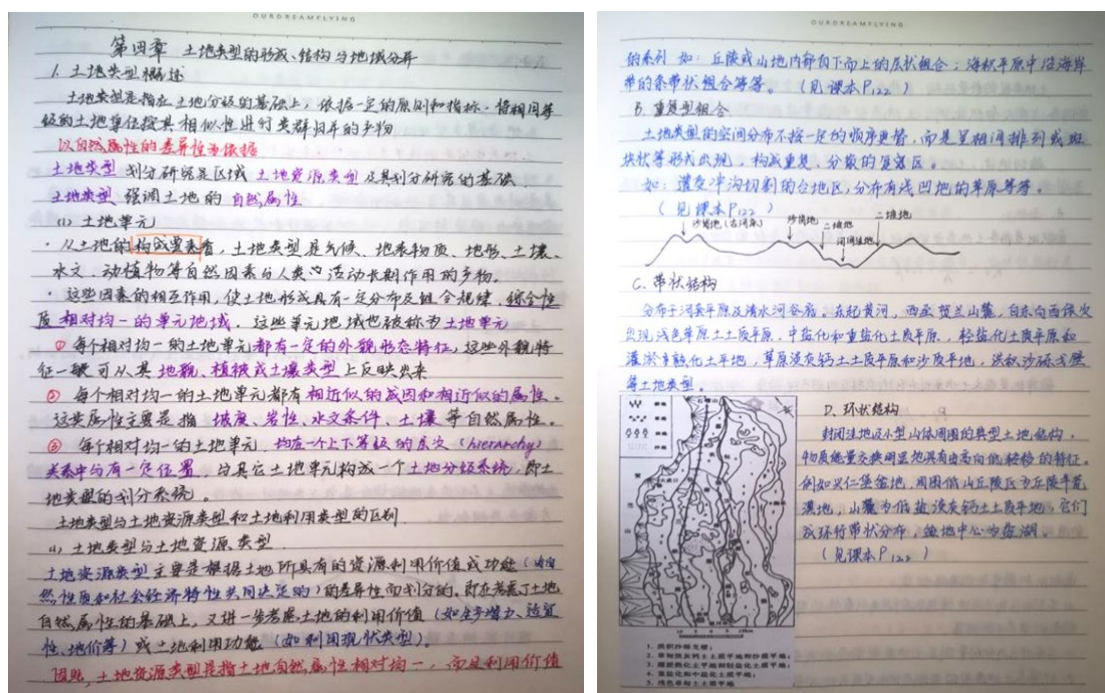 OURDREAMFLYING
第四章 土地类型的形成、结构与地域分异
1. 土地类型概述
土地类型是指在土地分级的基础上,依据一定的原则和指标,将相同等
级的土地单位按其相似性进行类群归并的产物
以自然属性的差异性为依据
土地类型 划分研究是区域 土地资源类型 及其划分研究的基础
土地类型 强调土地的 自然属性
(1) 土地单元
· 从土地的构成要素看,土地类型是气候、地表物质、地形、土壤、
水文、动植物等自然因素与人类活动长期作用的产物。
· 这些因素的相互作用,使土地形成具有一定分布及组合规律,综合性
质相对均一的单元地域。这些单元地域也被称为土地单元
① 每个相对均一的土地单元都有一定的外貌形态特征,这些外貌特
征一般可从其 地貌、植被或土壤类型 上反映出来
② 每个相对均一的土地单元都有相近似的成因和相近似的属性。
这类属性主要是指 坡度、岩性、水文条件、土壤 等自然属性。
③ 每个相对均一的土地单元,均在一个上下等级的层次(hierarchy)
关系中占有一定位置,与其它土地单元构成一个土地分级系统,即土
地类型的划分系统。
土地类型与土地资源类型和土地利用类型的区别
(1) 土地类型与土地资源类型
土地资源类型主要是根据土地所具有的资源利用价值或功能(由自
然性质和社会经济特性共同决定的)的差异性而划分的。即在考虑了土地
自然属性的基础上,又进一步考虑土地的利用价值(如生产潜力、适宜
性、地价等)或土地利用功能(如利用现状类型)。
因此,土地资源类型是指土地自然属性相对均一,而且利用价值
OURDREAMFLYING
的系列 如:丘陵或山地内部自下而上的层状组合;海积平原中沿海岸
带的条带状组合等等。(见课本P122)
B. 重复型组合
土地类型的空间分布不按一定的顺序更替,而是呈相间排列或斑
块状等形式出现,构成重复、分散的复合区。
如:遭受冲沟切割的台地区,分布有浅凹地的草原等等。
(见课本P122)
沙岗地(古河床)
沙岗地
二坡地
河间洼地
二坡地
C. 带状结构
分布于河套平原及清水河谷底。东起黄河,西至贺兰山麓,自东向西依次
出现浅色草原土土质平原、中盐化和重盐化土质平原、轻盐化土质平原和
灌淤熟化土平地,草原淡灰钙土土质平原和沙质平地,洪积沙砾戈壁
等土地类型。
D. 环状结构
封闭洼地及小型山体周围的典型土地结构,
物质能量交换明显地具有由高向低转移的特征。
例如兴仁堡盆地,周围低山丘陵区为丘陵草荒
漠地,山麓为低盐淡灰钙土土质平地,它们
成环行带状分布,盆地中心为盐湖。
(见课本P122)